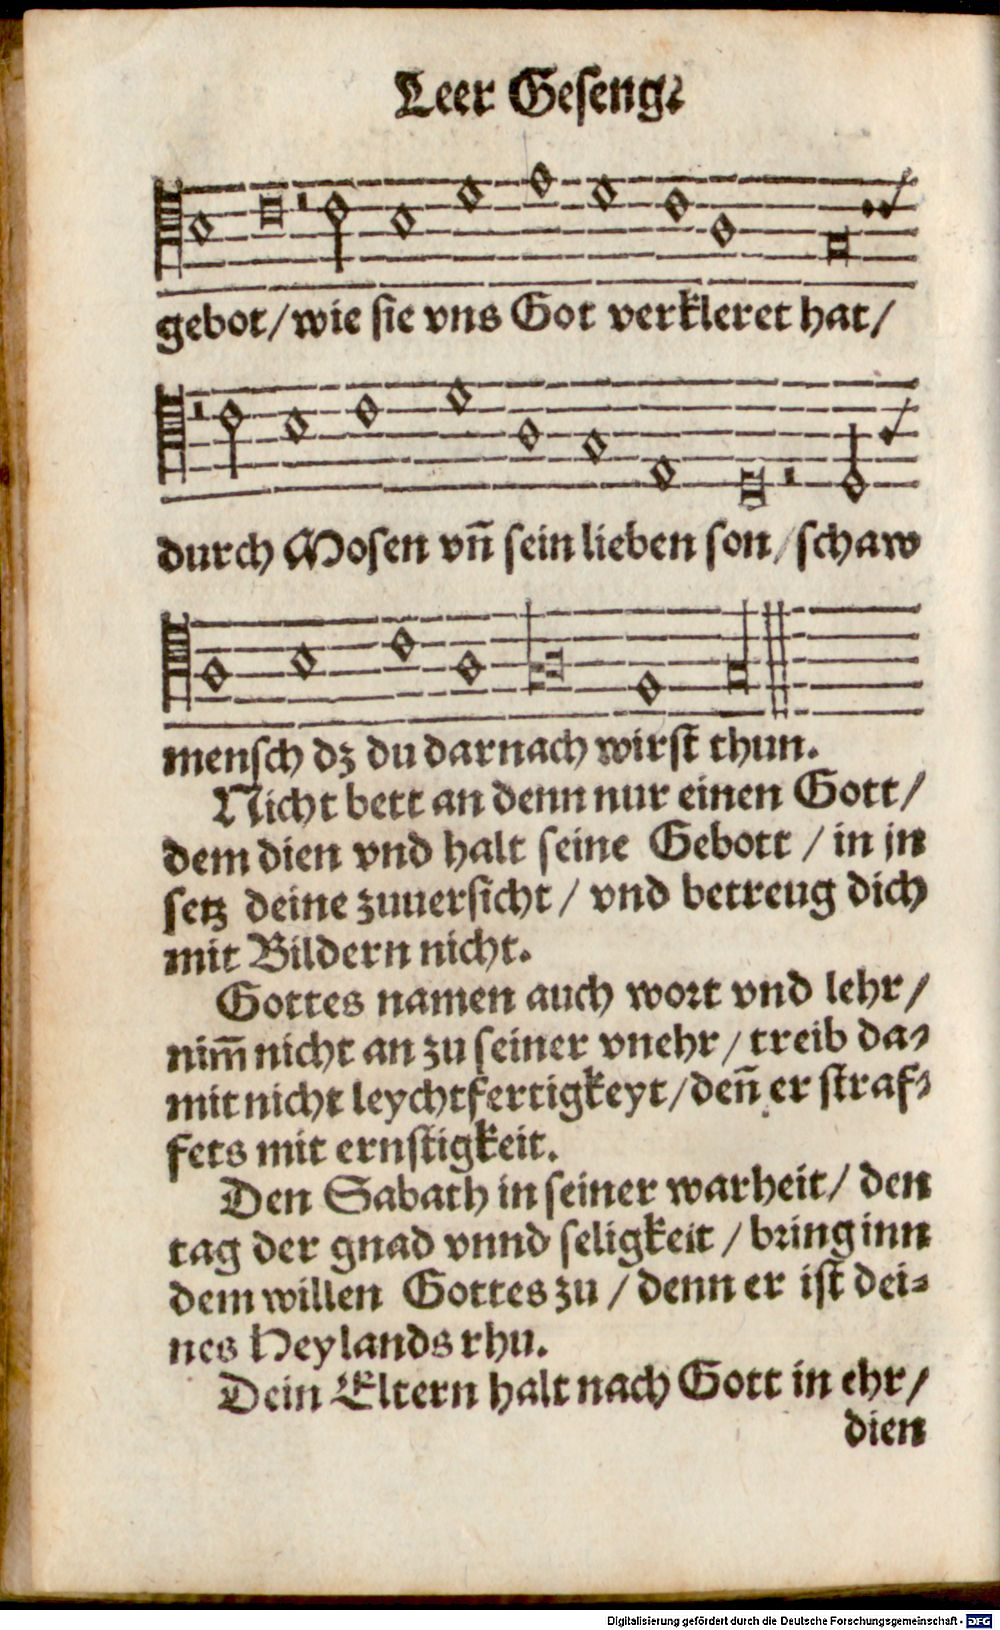 Leer Geseng.
gebot/wie sie vns Got verkleret hat/
durch Mosen vñ sein lieben son/schaw
mensch dz du darnach wirst thun.
Nicht bett an denn nur einen Gott/
dem dien vnd halt seine Gebott / in jn
setz deine zuuersicht / vnd betreug dich
mit Bildern nicht.
Gottes namen auch wort vnd lehr/
nim̃ nicht an zu seiner vnehr / treib da-
mit nicht leychtfertigkeyt/deñ er straf-
fets mit ernstigkeit.
Den Sabath in seiner warheit/ den
tag der gnad vnnd seligkeit / bring inn
dem willen Gottes zu / denn er ist dei-
nes Heylands rhu.
Dein Eltern halt nach Gott in ehr/
dien
Digitalisierung gefördert durch die Deutsche Forschungsgemeinschaft - DFG